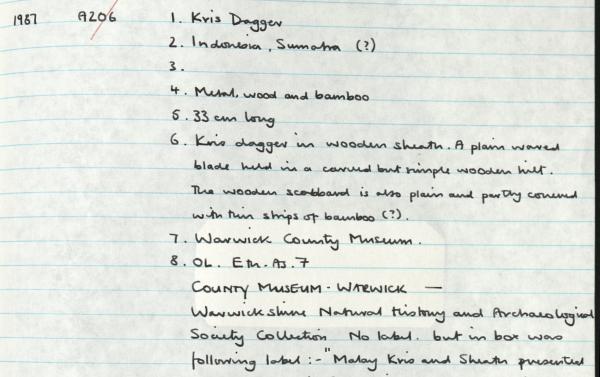 1987 A206 1. Kris Dagger
2. Indonesia, Sumatra (?)
3.
4. Metal, wood and bamboo
5. 33 cm long
6. Kris dagger in wooden sheath. A plain waved
blade held in a carved but simple wooden hilt.
The wooden scabbard is also plain and partly covered
with thin strips of bamboo (?).
7. Warwick County Museum.
8. OL. Eth. As. 7
COUNTY MUSEUM - WARWICK —
Warwickshire Natural History and Archaeological
Society Collection No label. but in box was
following label :- "Malay Kris and Sheath presented